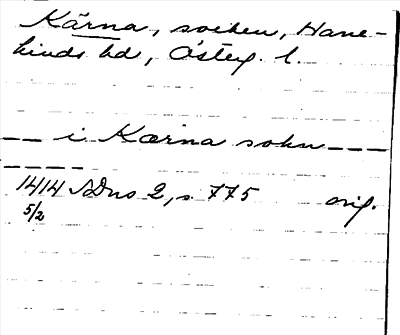 Kärna, socken, Hane-
kinds hd, Österg. l.
— — i Kærna sokn — — —
— — — —
1414 SDns 2, s. 775 orig.
5/2